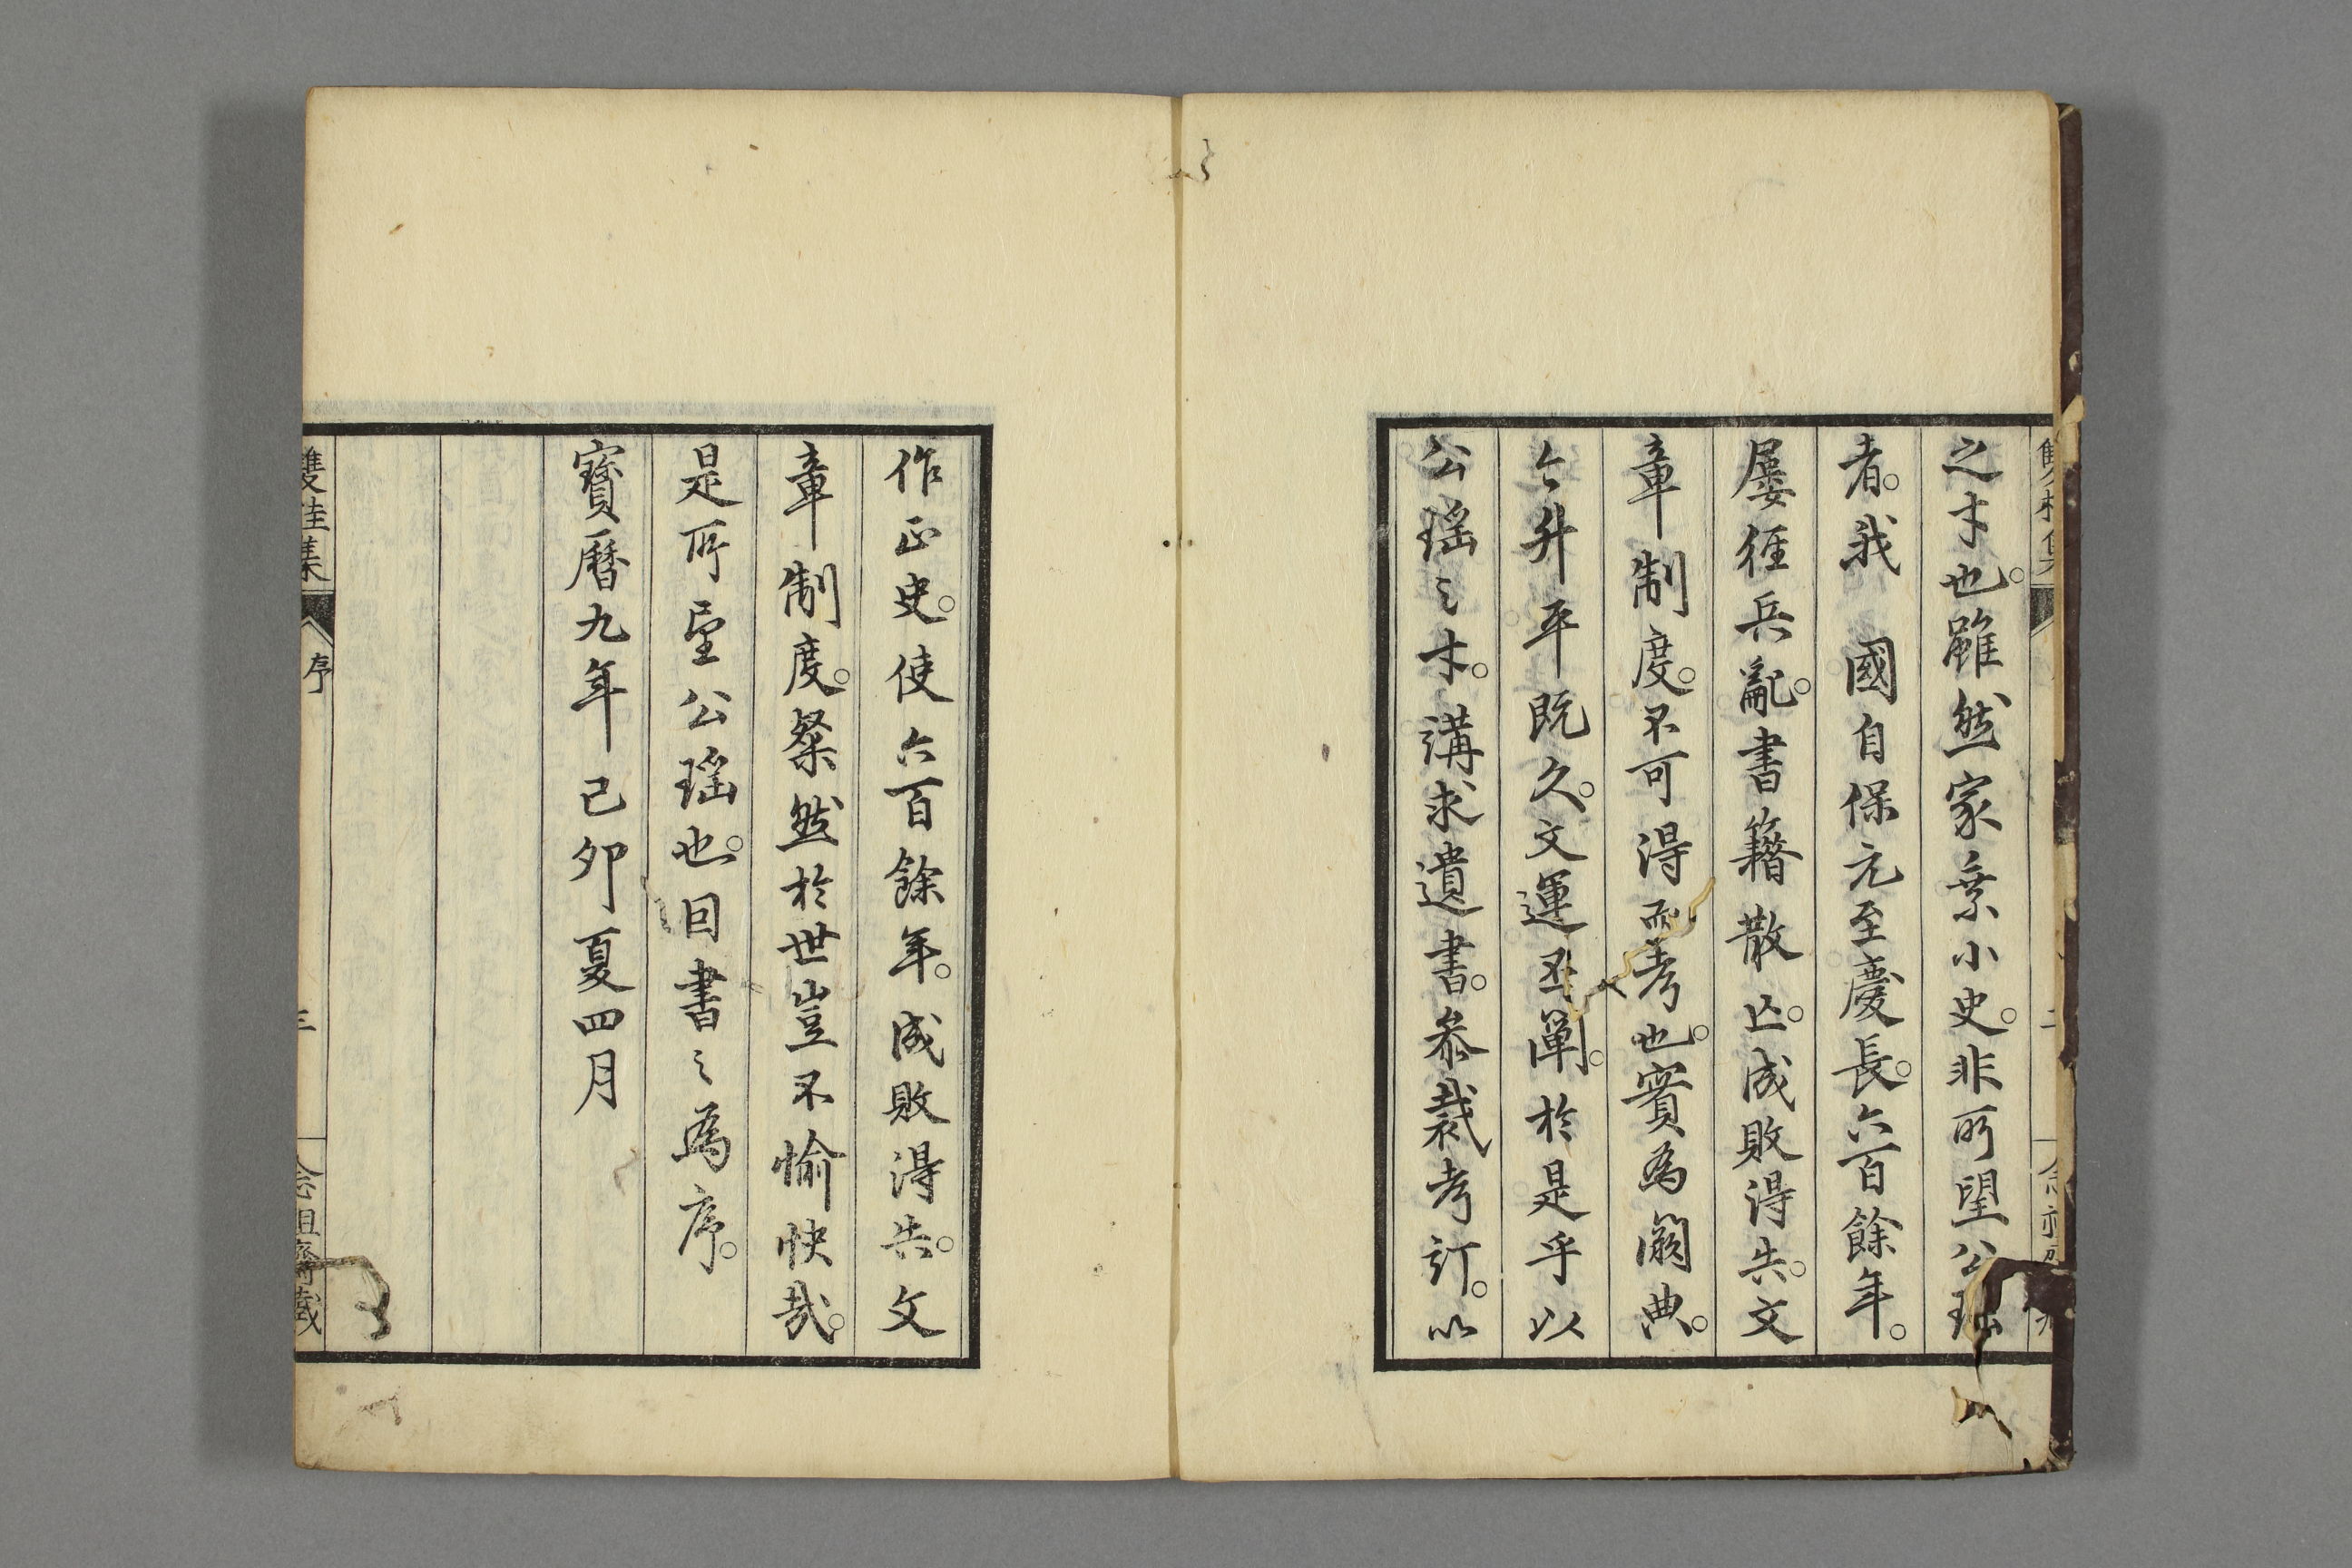 之才也。雖然家乗小史。非所望公瑶
者。我　國自保元至慶長。六百餘年。
屢經兵亂。書籍散亡。成敗得失。文
章制度。不可得而考也。實為闕典。
今升平既久。文運丕闡。於是乎以
公瑶之才。講求遺書。参裁考訂。以
作正史。使六百餘年。成敗得失。文
章制度。粲然於世豈不愉快哉。
是所望公瑶也。因書之為序。
寶曆九年己卯夏四月
雙桂集
序
三